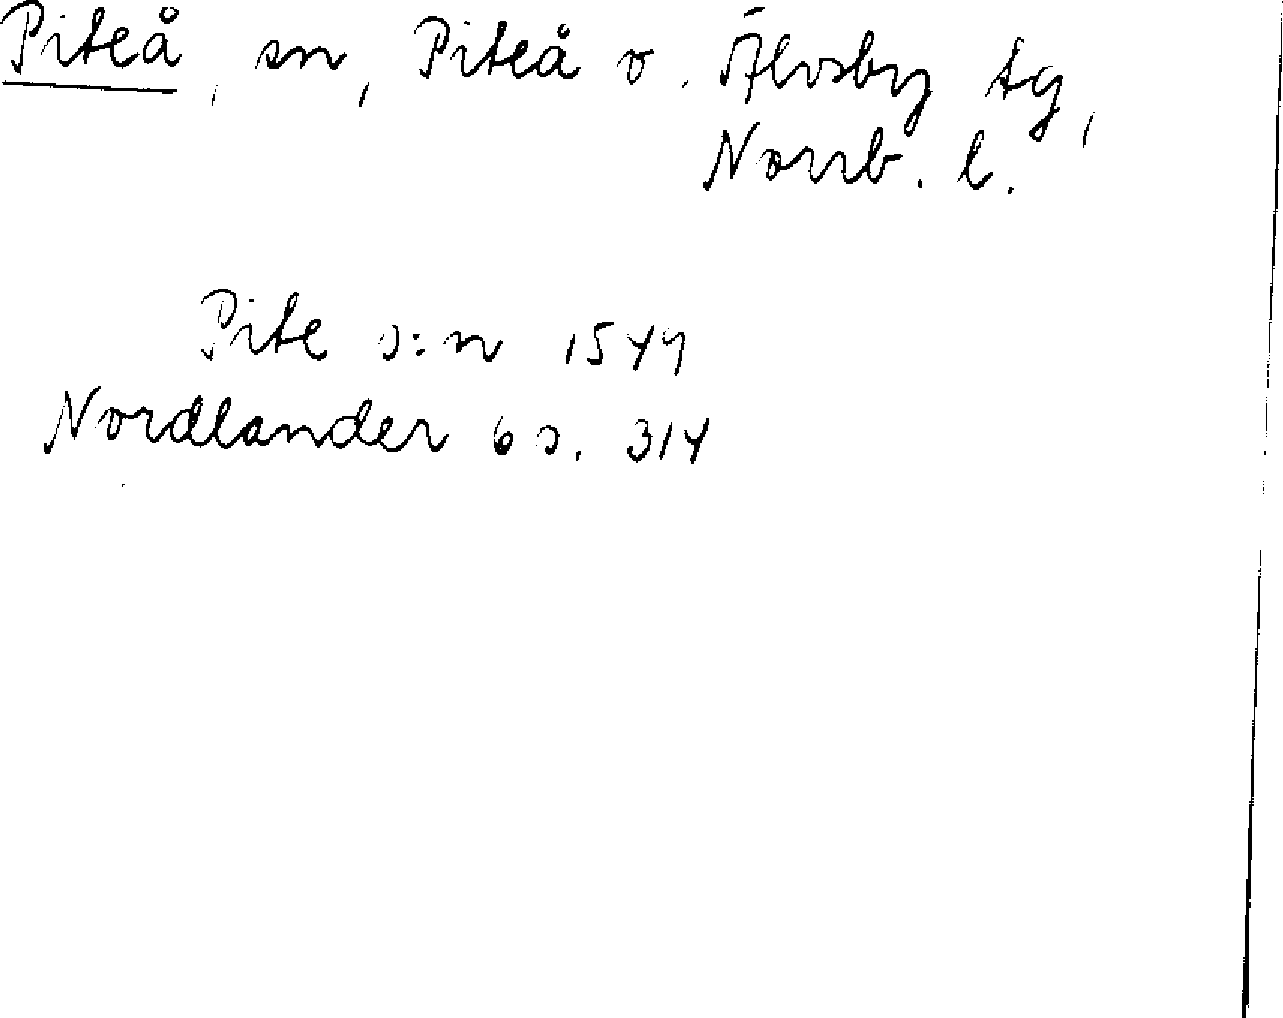 Piteå, sn, Piteå o. Älvsby tg,
Norrb. l.
Pite s:n 1549
Nordlander 6 s. 314